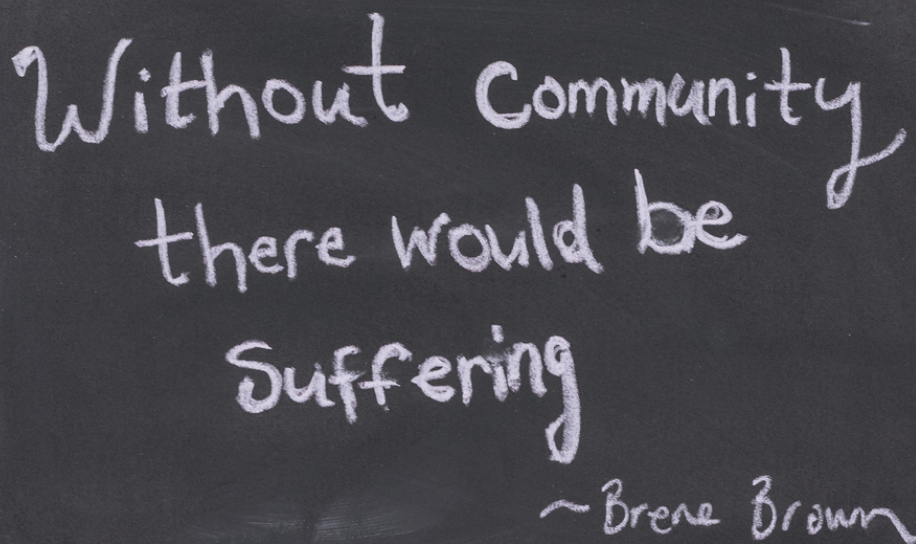 Without Community
there would be
Suffering
~Brene Brown